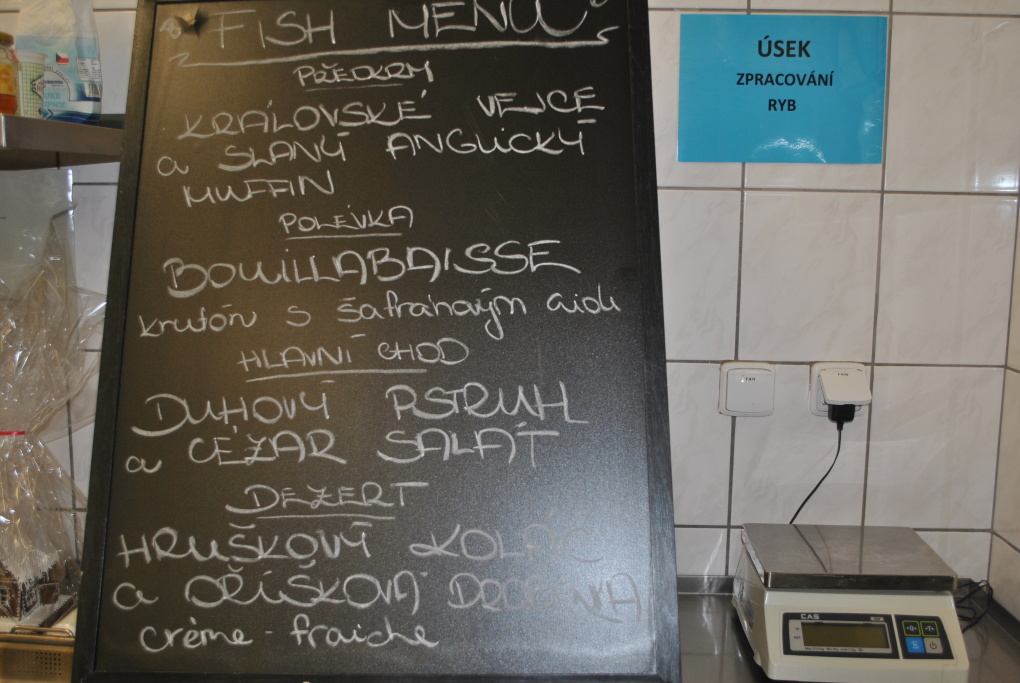 FISH MENU
PŘEDKRM
KRÁLOVSKÉ VEJCE
a SLANÝ ANGLICKÝ
MUFFIN
POLÉVKA
BOUILLABAISSE
krutón s šafránovým aioli
HLAVNÍ CHOD
DUHOVÝ PSTRUH
a CÉZAR SALÁT
DEZERT
HRUŠKOVÝ KOLÁČ
a OŘÍŠKOVÁ
crème - fraiche
ÚSEK
ZPRACOVÁNÍ
RYB
CAS